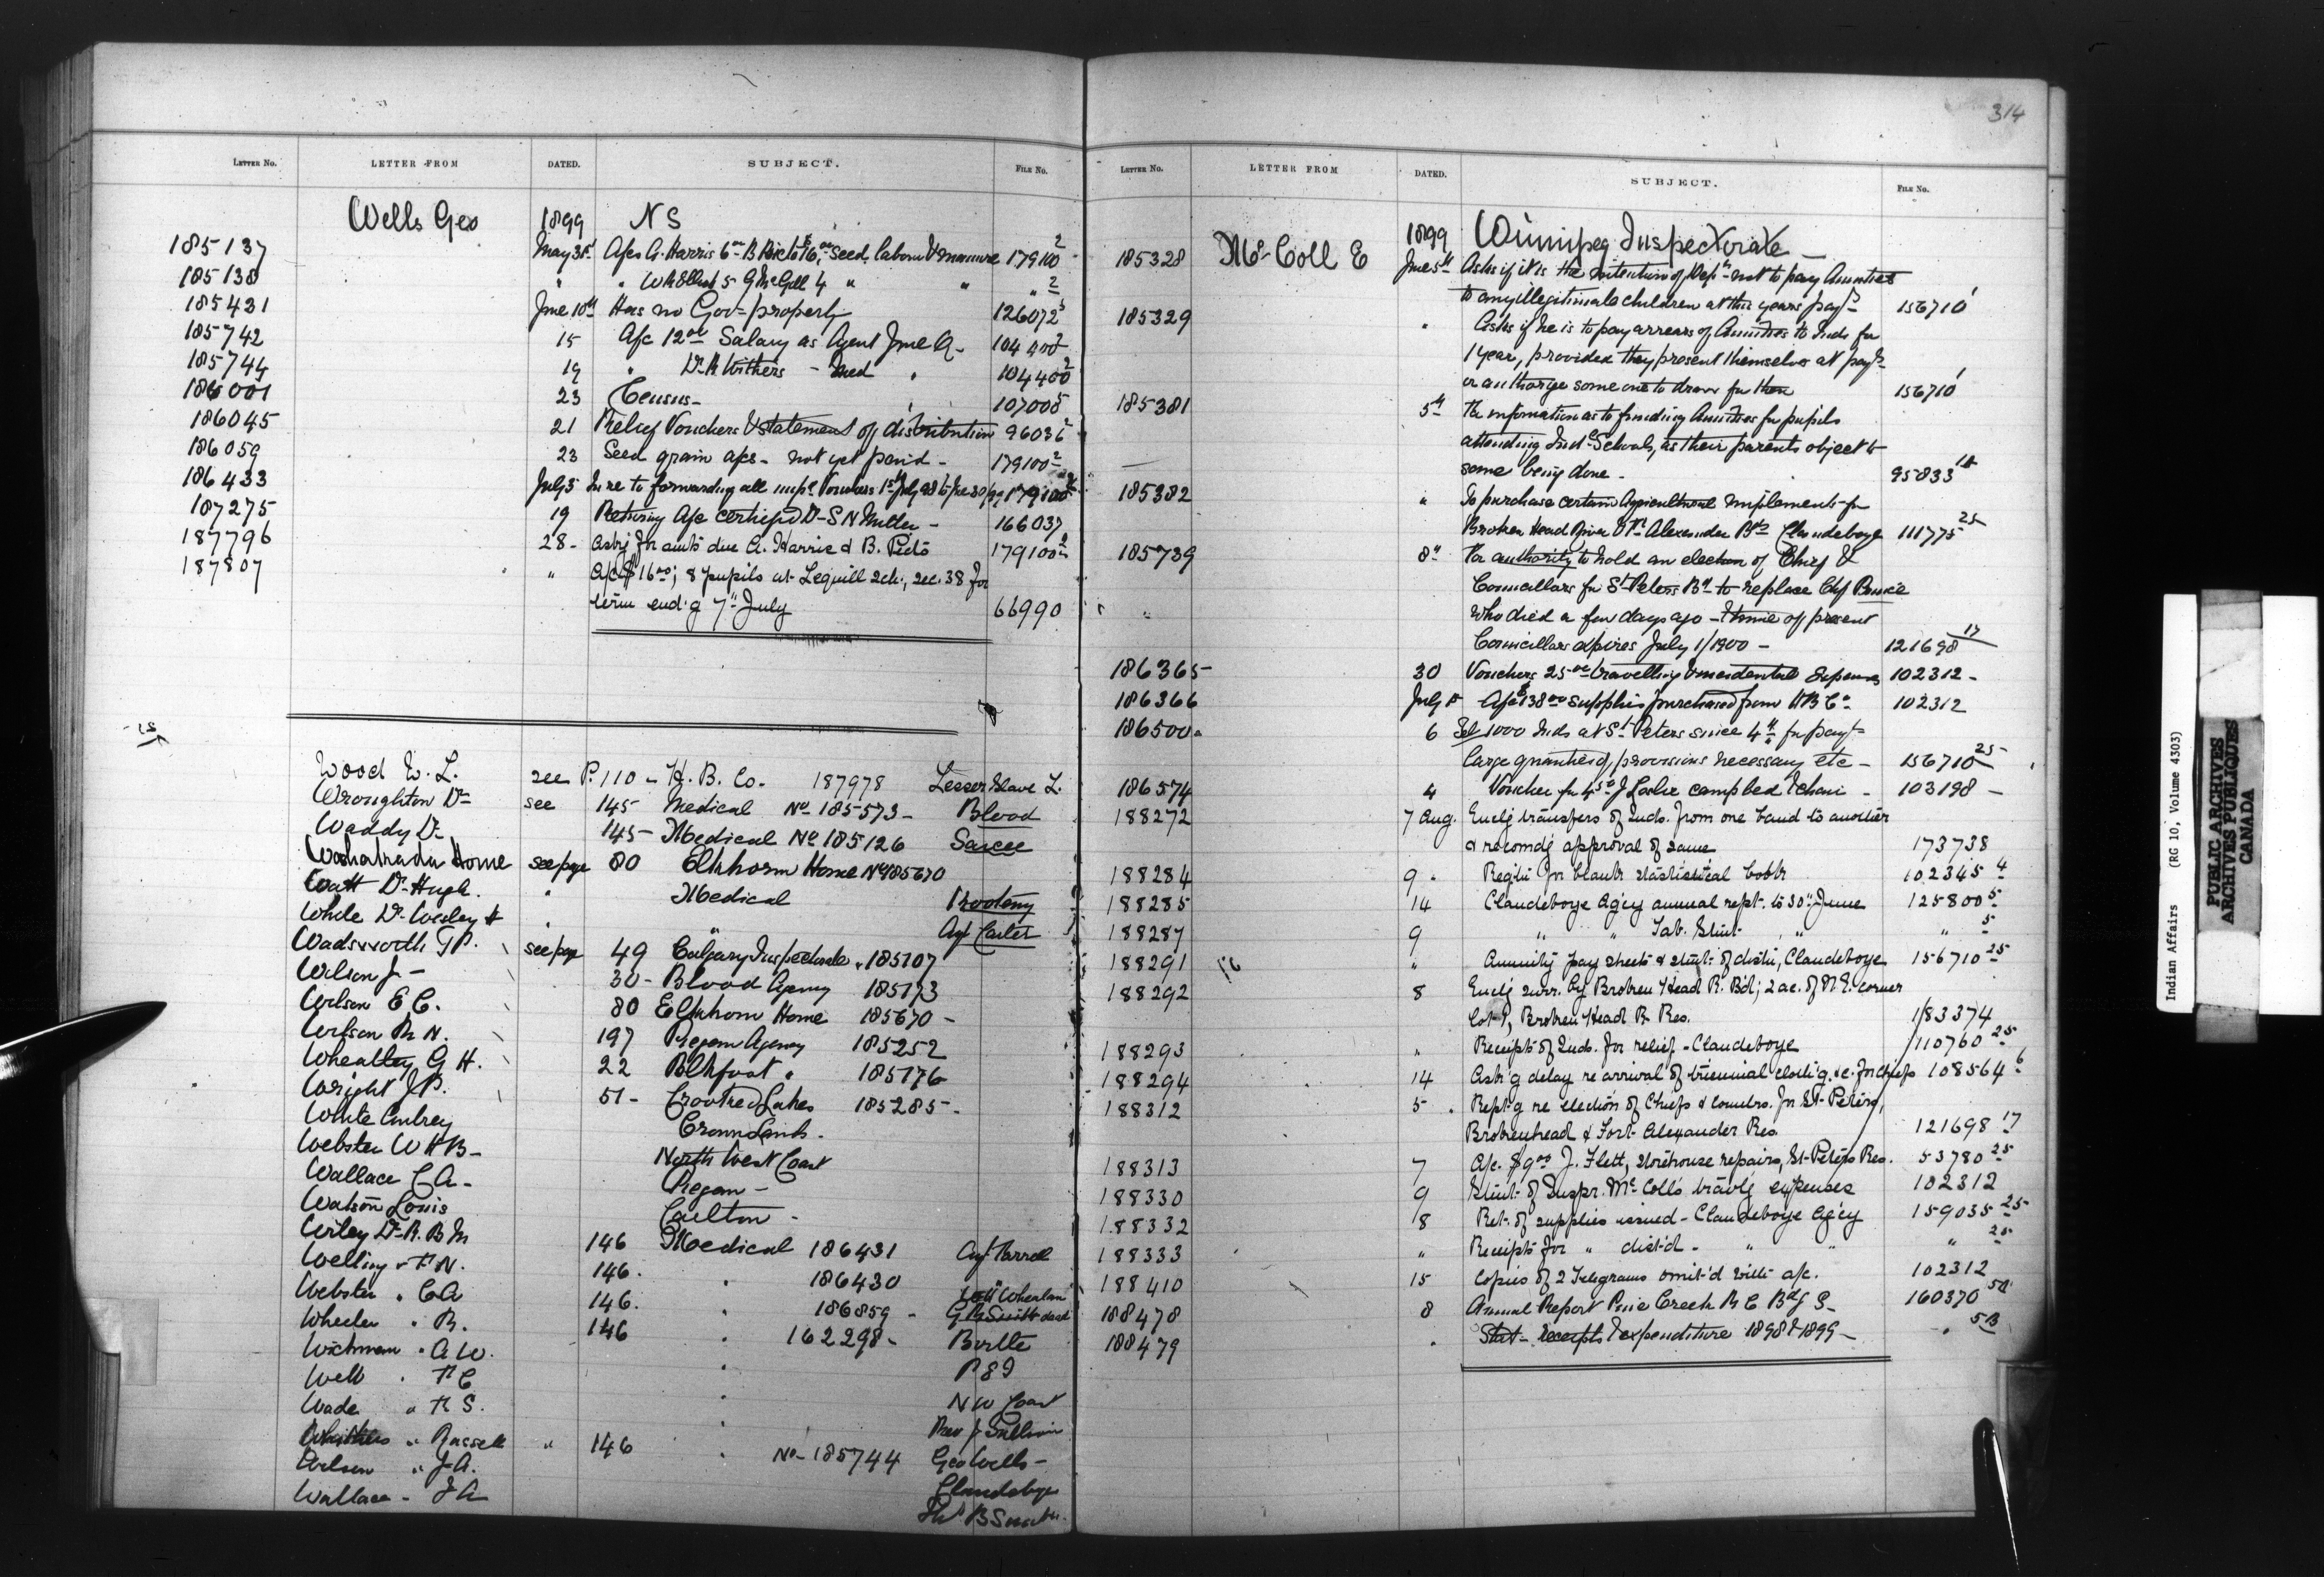 LETTER No. LETTER FROM DATED. SUBJECT. FILE No.
Wells Geo 1899 N S
185137 May 31 A/cs A. Harris 6 B 16 Seed, labour & manure 179100 2
185138 " " 5 G McGill 4 " " " 2
185431 June 10th Has no Govt property 126072
185742 15 A/c 12 Salary as Agent June Q - 104400 2
185744 19 " Dr. R Withers - Med " 104400 2
186001 23 Census - 107005
186045 21 Relief Vouchers & statement of distribution 96036
186059 23 Seed grain a/cs - not yet paid - 179100 2
186433 July 5 In re to forwarding all Vouchers 1st July 98 to June 30/99 179100
187275 19 Returng A/c certified Dr S N Miller - 166037
187796 28 - Askg for amts due A. Harris & B. 179100
187807 " A/c $16 00; 8 pupils at Lequill Sch., sec. 38 for
term end'g 7" July 66990
Wood W. L. see P. 110 - H. B. Co. 187978 Lesser Slave L.
Wroughton Dr see 145 Medical No 185573 - Blood
Waddy Dr 145 - Medical No 185126 Sarcee
Washakada Home see page 80 Elkhorn Home No 185670
Watt Dr Hugh " Medical Kootenay
White Dr Wesley " " Carter
Wadsworth T P. see page 49 Calgary Inspectorate 185107
Wilson J - 30 - Blood Agency 185173
Wilson E C. 80 Elkhorn Home 185670 -
Wilson R N. 197 Piegan Agency 185252
Wheatley G H. 22 Blkfoot " 185176
Wright J P. 51 - Crooked Lakes 185285 -
White Aubrey Crown Lands.
Webster W H B - North West Coast
Wallace C A - Piegan -
Watson Louis Carlton -
Wiley Dr R. B M 146 Medical 186431
Welling " F N. 146. " 186430
Webster " C A 146. " 186859 -
Wheeler " R. 146 " 162298 - Birtle
" A W. " P 89
Well " F C " N W Coast
Wade " F S. " Rev J
" Russell " 146 " No - 185744 Geo Wells -
Wilson " J A. Clandeboye
Wallace - J A
314
LETTER No. LETTER FROM DATED. SUBJECT. FILE No.
McColl E 1899 Winnipeg Inspectorate -
185328 June 5th Asks if it is the intention of Dept not to pay Annuities
to any illegitimate children at this years payt - 156710 1
185329 " Asks if he is to pay arrears of Annuities to Inds for
1 year, provided they present themselves at payt -
or authorize some one to draw for them 156710 1
185381 5th For information as to funding Annuities for pupils
attending Indl Schools, as their parents object to
same being done - 95833
185382 " To purchase certain Agricultural implements for
Broken Head River & Ft Alexander Bds Clandeboye 111775 25
185739 8" For authority to hold an election of Chief &
Councillors for St Peters Bd to replace Chf Prince
who died a few days ago - & time of present
Councillors expires July 1/1900 - 121698 17
186365 30 Vouchers 25 travelling & incidental Expenses 102312 -
186366 July 5 A/c $38 00 supplies purchased from H B Co 102312
186500 6 1000 Inds at St Peters since 4th for payt -
large quantity of provisions necessary etc - 156710 25
186574 4 Voucher for J Leslie 103198 -
188272 7 Aug. Enclg transfers of Inds. from one band to another
& recomdg approval of same 173738
188284 9 " Req'n for blank statistical books 102345 4
188285 14 Clandeboye Agcy annual rept. to 30" June 125800 5
188287 9 " " Tab. Stmt " " " 5
188291 " Annuity pay sheets & stmt of distn, Clandeboye 156710 25
188292 8 Enclg surr. by Broken Head R. Bd; 2 ac. of N. E. corner
Lot 1, Broken Head R Res. 183374
188293 " Receipts of Inds. for relief - Clandeboye 110760 25
188294 14 Ask'g delay re arrival of triennial cloth'g. &c. for chiefs 108564 6
188312 5 . Rept'g re election of Chiefs & councrs. for St Peters,
Brokenhead & Fort Alexander Res. 121698 17
188313 7 A/c. $9 00 J. Flett, storehouse repairs, St Peters Res. 53780 25
188330 9 Stmt of Inspr. McColl's travlg expenses 102312
188332 8 Ret. of supplies issued - Clandeboye Agcy 159035 25
188333 " Receipts for " dist'd - " " " 25
188410 15 Copies of 2 Telegrams omit'd with a/c. 102312
188478 8 Annual Report Pine Creek R C Bdg S - 160370 5B
188479 " Stat - receipts & expenditure 1898 & 1899 - " 5B
Indian Affairs (RG 10, Volume 4303)
PUBLIC ARCHIVES
ARCHIVES PUBLIQUES
CANADA